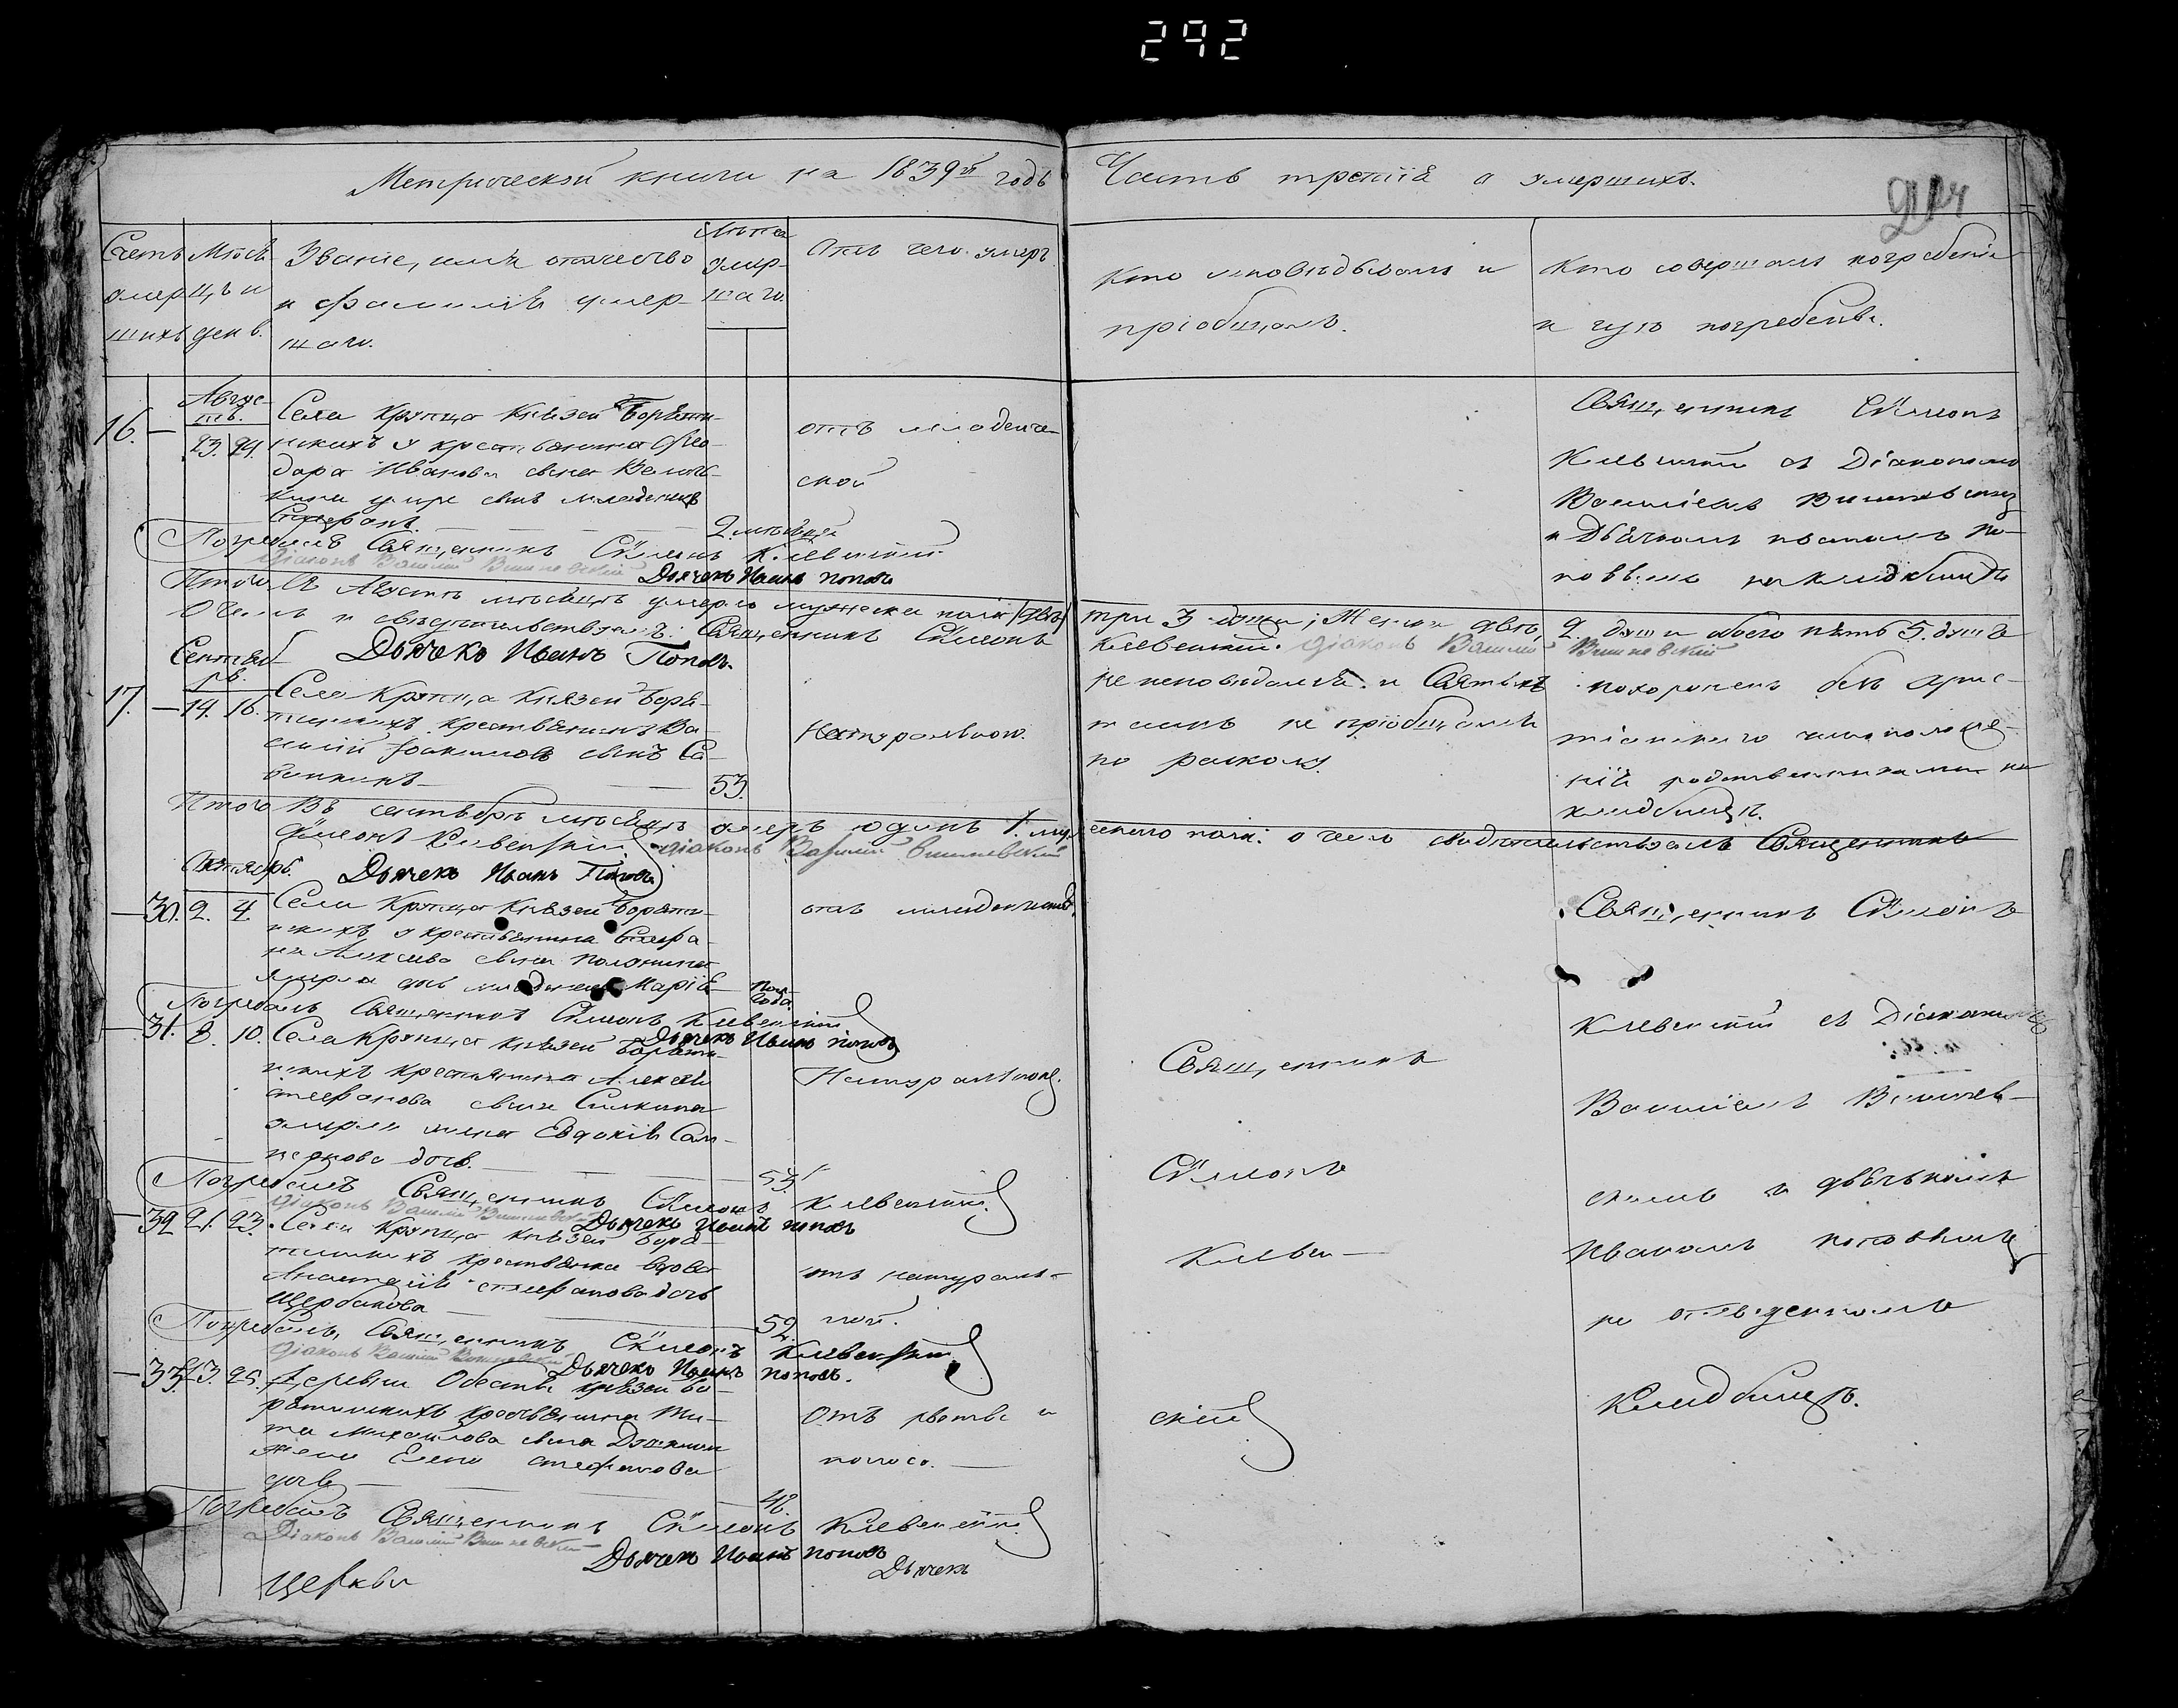 292
Метрической книги на 1839й годъ
Часть третія о умершихъ.
Счетъ умершихъ
Мѣсяцъ и день.
Званіе, имя отчество
и фамилія умер-
шаго.
Лѣта
умер-
шаго.
Отъ чего умеръ
Кто исповѣдывалъ и
пріобщалъ.
Кто совершалъ погребеніе
и гдѣ погребены.
16.
Авгус-
тъ.
23. 24.
Села Крупца Князей Борятин-
скихъ у крестьянина Фео-
дора Иванова сына
умре сынъ младенецъ
Стефанъ.
2 мѣсяцей
отъ младенче-
ской
Священникъ Сѵмеонъ
съ Діакономъ
Василіемъ Вишневскимъ
и Дьячкомъ Иваномъ По-
повымъ на кладбищѣ
Погребалъ Священникъ Сѵмеонъ
Діаконъ Василій Вишневскій Дьячекъ Иванъ Поповъ
Итого въ Августѣ мѣсяцѣ умерло мужеска пола
три 3 души; Женска двѣ, 2. души обоего пять 5. душъ
О чемъ и свидѣтельствуемъ: Священникъ Сѵмеонъ
Діаконъ Василій Вишневскій
Дьячекъ Иванъ Поповъ.
Сентяб-
рь.
17. 14. 16.
Села Крупца Князей Боря-
тинскихъ крестьянинъ Ва-
силій Іоакимовъ сынъ Са-
53.
Натуральною.
не исповѣдался и Святыхъ
таинъ не пріобщался
по расколу.
похороненъ безъ Хрис-
тіанскаго чиноположе-
нія родственниками на
кладбищѣ.
Итого Въ сентябрѣ мѣсяцѣ умеръ одинъ 1. мужескаго пола: о чемъ свидѣтельствуемъ Священникъ
Сѵмеонъ Діаконъ Василій Вишневскій
Дьячекъ Иванъ Поповъ
Октябрь.
30. 2. 4.
Села Крупца Князей Боряти-
нскихъ у крестьянина Стефа-
на Алексѣева сына
умерла дочь младенецъ Марія
Пол-
года
отъ младенческой
Священникъ Сѵмеонъ
Погребалъ Священникъ Сѵмеонъ
Дьячекъ Иванъ Поповъ
31. 8. 10.
Села Крупца Князей Боряти-
нскихъ крестьянина Алексѣя
Стефанова сына
умерла жена Евдокія
дочь.
53.
Натуральною.
Священникъ
Сѵмеонъ
съ Діакономъ
Василіемъ Вишнев-
скимъ и дьячкомъ
Иваномъ Поповымъ
на отведенномъ
Кладбищѣ.
Погребалъ Священникъ Сѵмеонъ
Діаконъ Василій Вишневскій Дьячекъ Иванъ Поповъ
32 21. 23.
Села Крупца Князей Боря-
тинскихъ крестьянка вдова
Анастасія Стефанова дочь
Щербакова
52.
отъ натураль-
ной.
Погребалъ Священникъ Сѵмеонъ
Діаконъ Василій Вишневскій Дьячекъ Иванъ Поповъ.
33. 23. 25.
Деревни Князей Бо-
рятинскихъ крестьянина Ти-
та Михайлова сына
жена Елена Стефанова
дочь
48.
Отъ рвоты и
поноса.
Погребалъ Священникъ Сѵмеонъ
Діаконъ Василій Вишневскій
Дьячекъ Иванъ Поповъ
Дьячекъ
Церкви